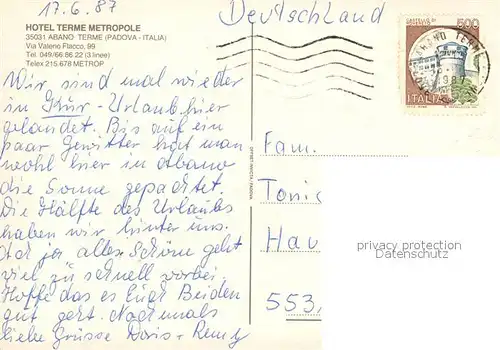 17.6.87
Deutschland
HOTEL TERME METROPOLE
35031 ABANO TERME (PADOVA - ITALIA)
Via Valerio Flacco, 99
Tel. 049/66 86 22 (3 linee)
Telex 215 678 METROP
500
ITALIA
Wir sind mal wieder
in Kur-Urlaub hier
gelandet. Bis auf ein
paar Gewitter hat man
wohl hier in Abano
die Sonne gepachtet.
Die Hälfte des Urlaubs
haben wir hinter uns.
Ach ja, alles Schöne geht
viel zu schnell vorbei.
Hoffe das es Euch Beiden
gut geht. Nochmals
liebe Grüsse Doris - Remy
Fam.
Toni
Hau
553
privacy protection
Datenschutz